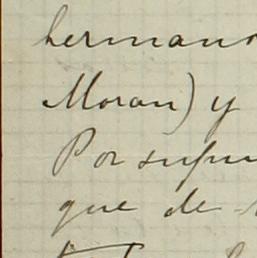 hermano
Moran) y
Por
que de